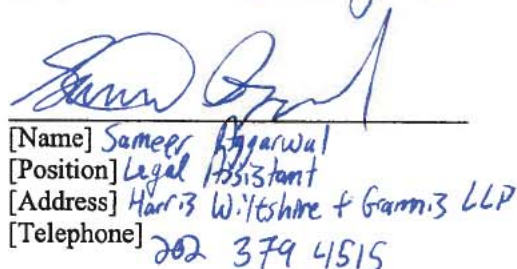 [Name] Sameer Aggarwal
[Position] Legal Assistant
[Address] Harris Wiltshire + Grannis LLP
[Telephone] 202 379 4515